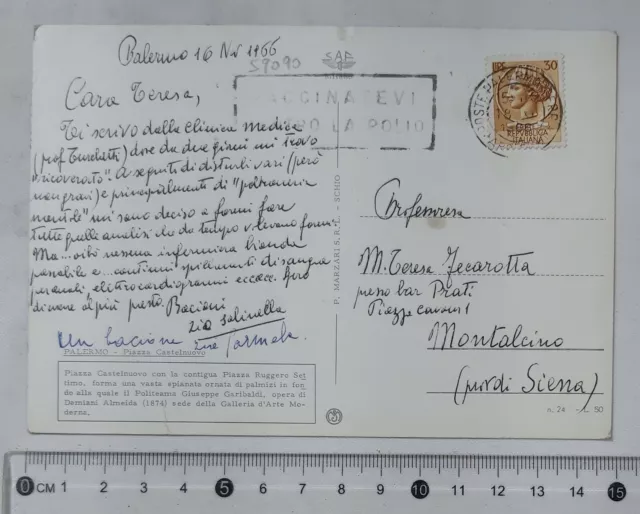 Palermo 16 Nov 1966
59090
SAF
Cara Teresa,
VACCINATEVI
CONTRO LA POLIO
Ti scrivo dalla Clinica Medica
(prof. Turchetti) dove da due giorni mi trovo
"ricoverato". A seguito di disturbi vari (però
non gravi) e principalmente di "poltroneria
mentale" mi sono deciso a farmi fare
tutte quelle analisi che da tempo volevano farmi.
Ma... ohi nessuna infermiera bionda
passabile e... continui spillamenti di sangue
prenali elettrocardiogrammi eccecc. Spero
di uscire al più presto. Bacioni
zio
Un bacione zia Carmela.
PALERMO - Piazza Castelnuovo
Piazza Castelnuovo con la contigua Piazza Ruggero Set
timo, forma una vasta spianata ornata di palmizi in fon
do alla quale il Politeama Giuseppe Garibaldi, opera di
Demiani Almeida (1874) sede della Galleria d'Arte Mo-
derna.
P. MARZARI S.R.L. - SCHIO
LIRE 30
REPUBBLICA
ITALIANA
POSTE PALERMO
Professoressa
M. Teresa Zecarotta
presso bar Prati
Piazza Cavour 1
Montalcino
(prov. di Siena)
n. 24 - L. 50
0 CM 1 2 3 4 5 6 7 8 9 10 11 12 13 14 15